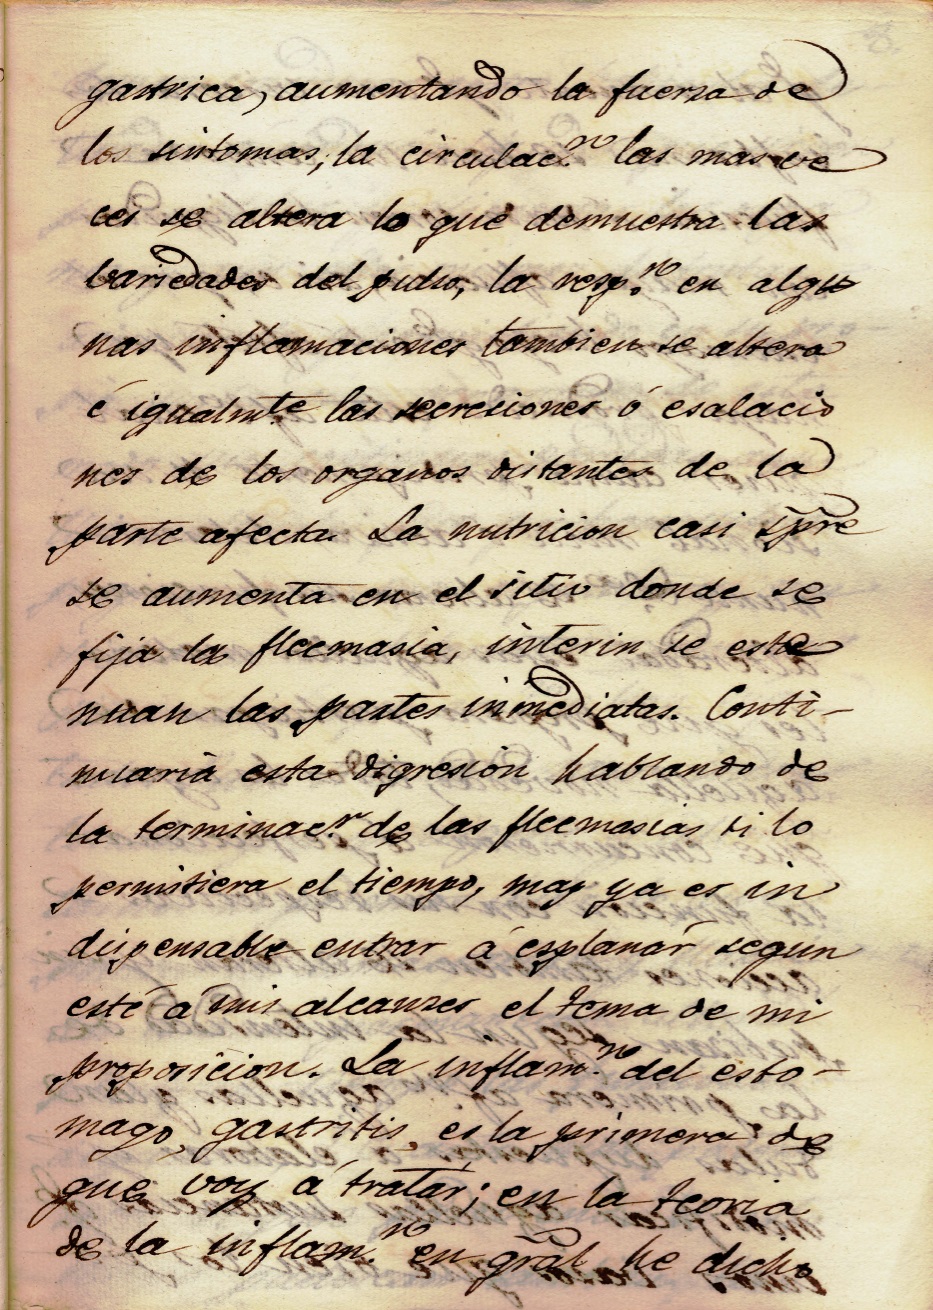 gastrica, aumentando la fuersa de
los sintomas; la circulac.n las mas ve
ces se altera lo que demuestra las
bariedades del pulso, la resp.n en algu
nas inflamaciones tambien se altera
é igualmte las secresiones ó esalacio
nes de los organos distantes de la
parte afecta. La nutricion casi spre
se aumenta en el sitio donde se
fija la fleemasia, interin se este
nuan las partes inmediatas. Conti-
nuaria esta digresion hablando de
la terminac.n de las fleemasias si lo
permitiera el tiempo, mas ya es in
dispensable entrar á esplanar segun
esté á mis alcanses el tema de mi
proposicion. La inflam.n del esto-
mago, gastritis, es la primera de
que voy á tratar; en la teoria
de la inflam.n en gral he dicho